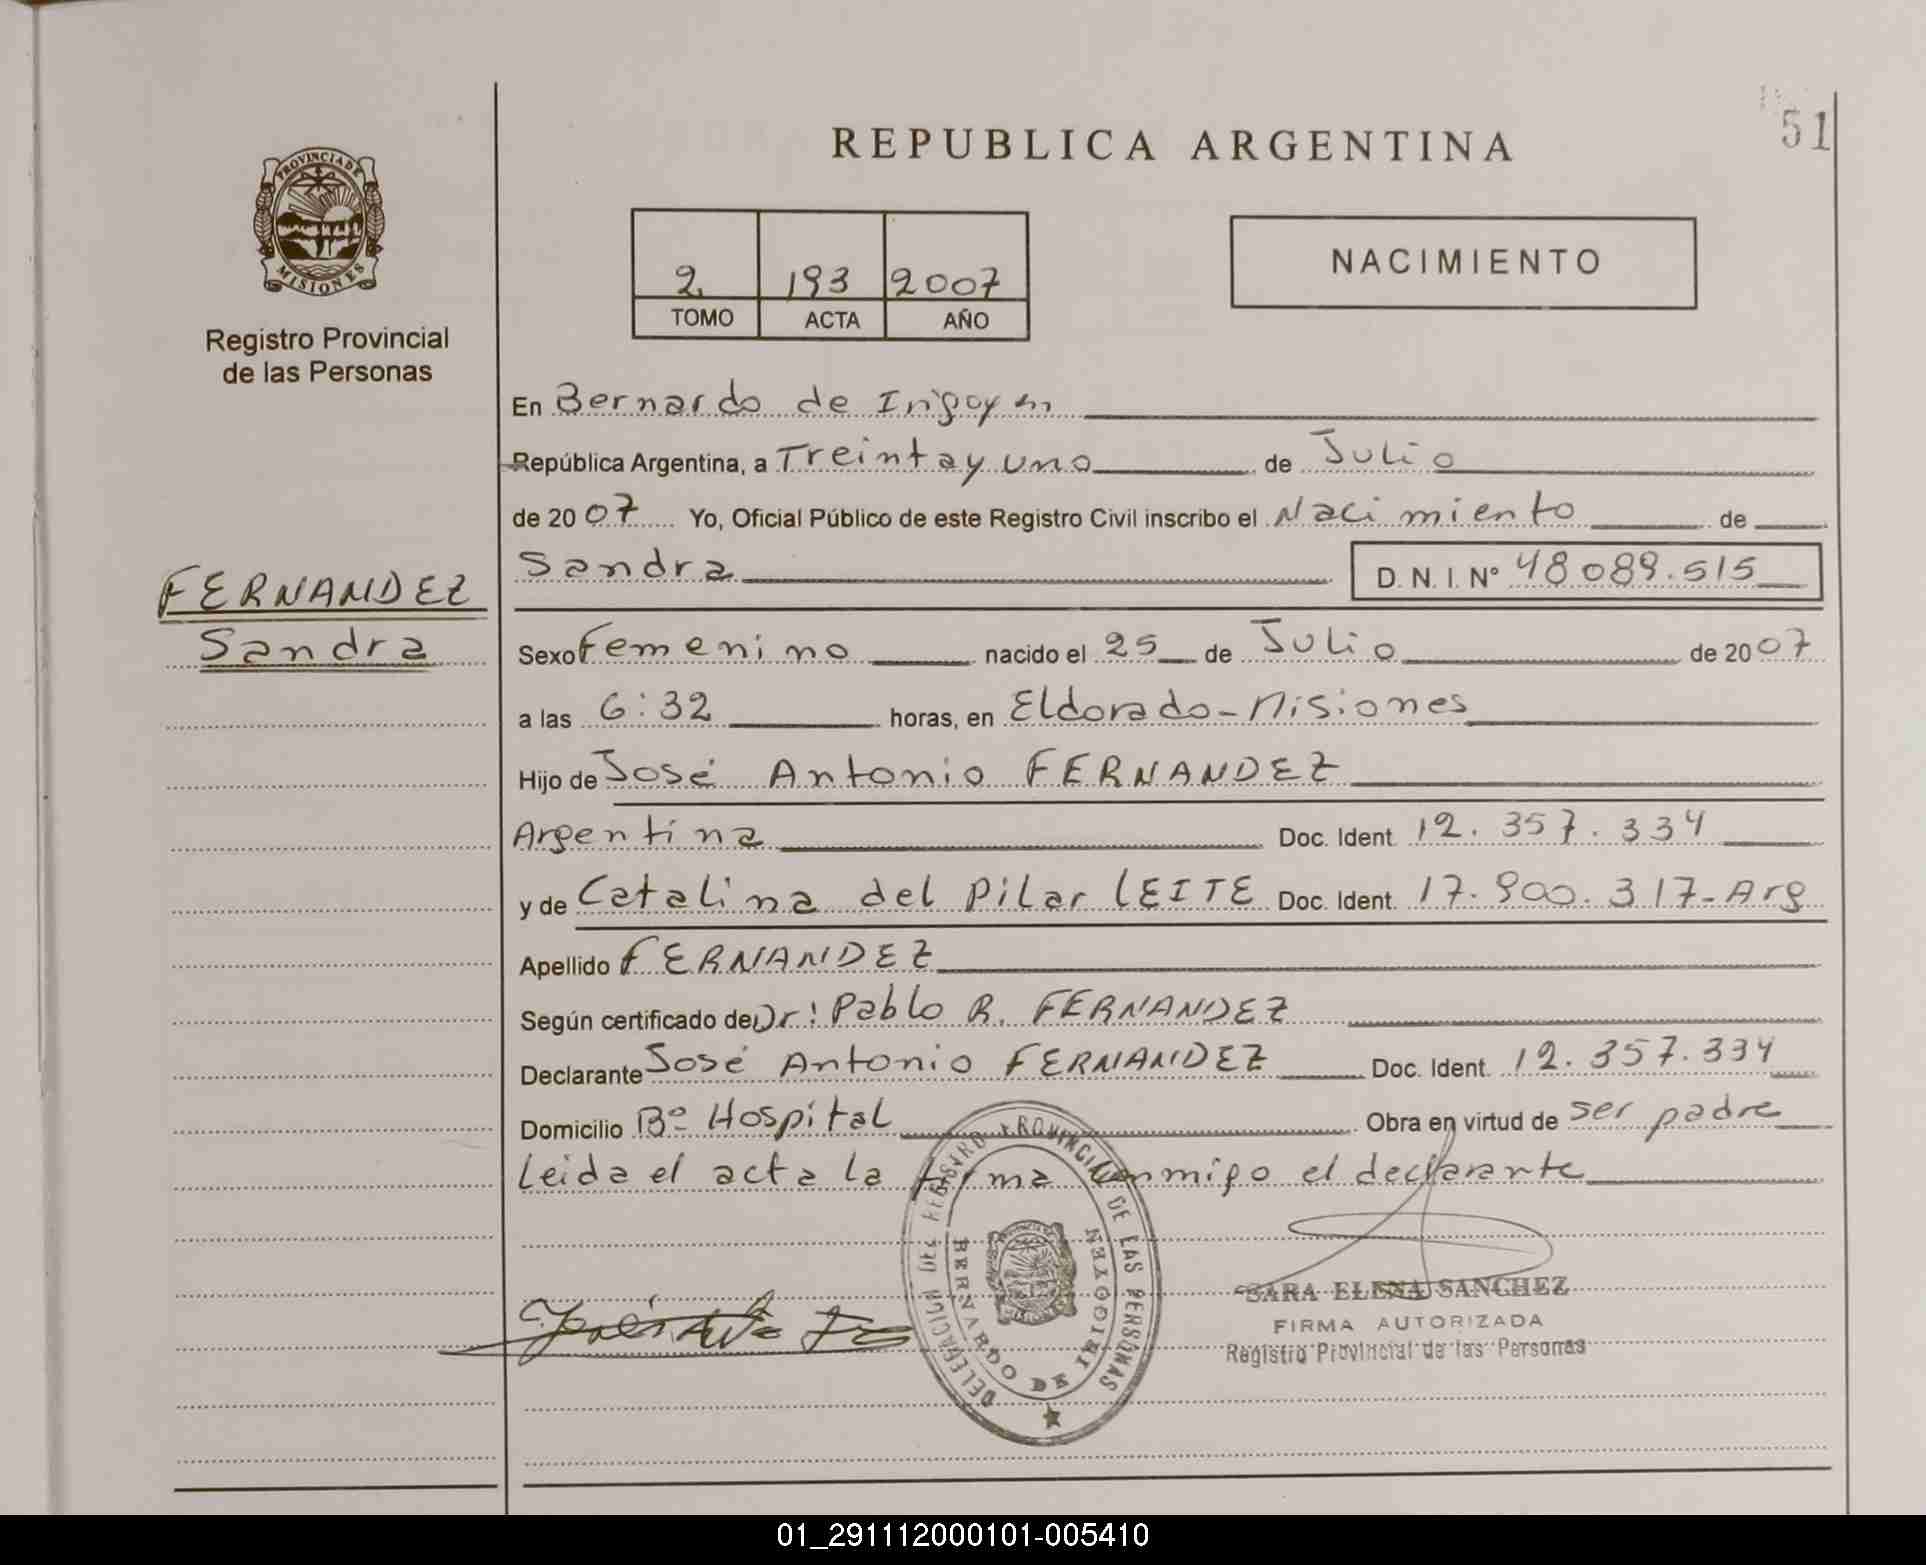 51
REPUBLICA ARGENTINA
PROVINCIA DE
MISIONES
Registro Provincial
de las Personas
2 193 2007
TOMO ACTA AÑO
NACIMIENTO
En Bernardo de Irigoyen
República Argentina, a Treinta y uno de Julio
de 2007 Yo, Oficial Público de este Registro Civil inscribo el Nacimiento de
Sandra D. N. I. Nº 48089.515
FERNANDEZ
Sandra
Sexo Femenino nacido el 25 de Julio de 2007
a las 6:32 horas, en Eldorado-Misiones
Hijo de José Antonio FERNANDEZ
Argentina Doc. Ident. 12.357.334
y de Catalina del Pilar LEITE Doc. Ident. 17.900.317-Arg
Apellido FERNANDEZ
Según certificado de Dr: Pablo R. FERNANDEZ
Declarante José Antonio FERNANDEZ Doc. Ident. 12.357.334
Domicilio Bº Hospital Obra en virtud de ser padre
Leida el acta la firma conmigo el declarante
DELEGACION DEL REGISTRO PROVINCIAL DE LAS PERSONAS
BERNARDO DE IRIGOYEN
SARA ELENA SANCHEZ
FIRMA AUTORIZADA
Registro Provincial de las Personas
01_291112000101-005410